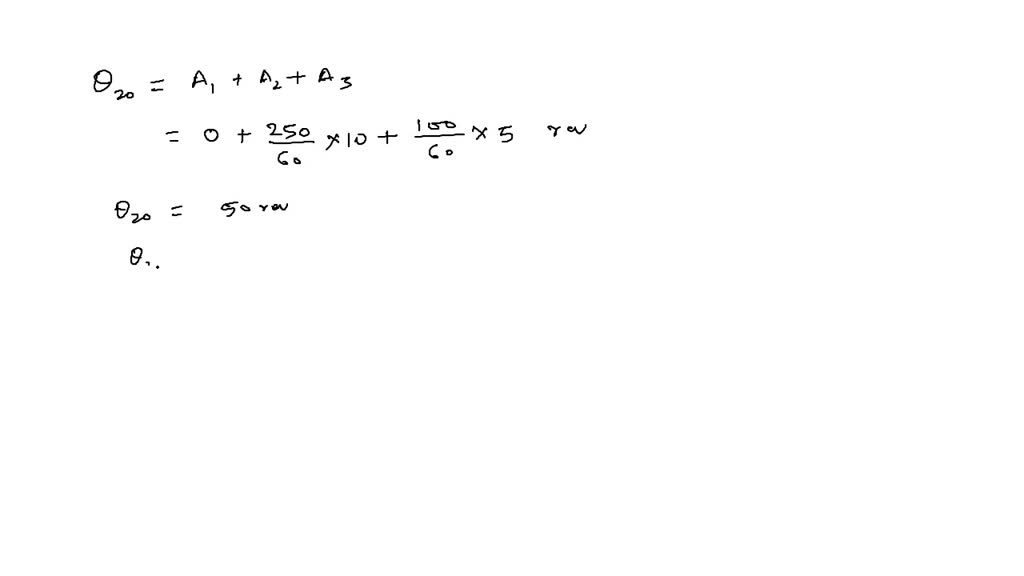 θ₂₀ = A₁ + A₂ + A₃
= 0 + 250/60 × 10 + 100/60 × 5 rev
θ₂₀ = 50 rev
θ..